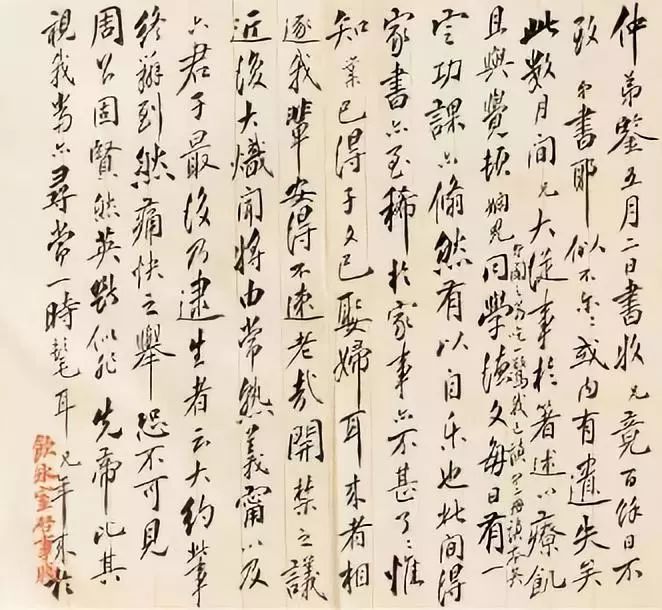 仲弟鉴五月二日书收兄竟百余日不
致弟书耶似不尔尔或内有遗失矣
此数月间兄大从事于著述以疗饥
且与觉顿娴儿同学德文每日有一
定功课亦翛然有以自乐也此间得
家书亦至稀于家事亦不甚了了惟
知叶已得子文已娶妇耳来者相
逐我辈安得不速老哉开禁之议
近复大炽闻将由常熟义宁以及
六君子最后乃逮生者云大约此事
终办到然痛快之举恐不可见
周公固贤然英断似非先帝比其
视我当亦寻常一时髦耳兄年来于
饮冰室启事牋